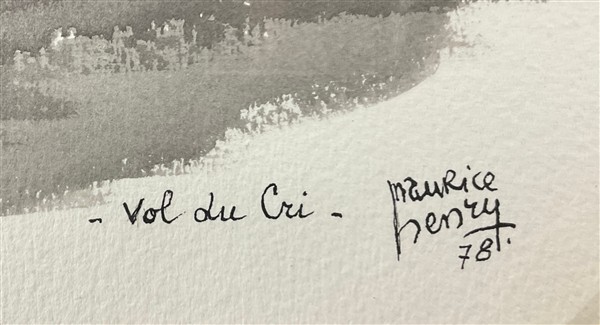 - Vol du Cri -
maurice
henry
78.